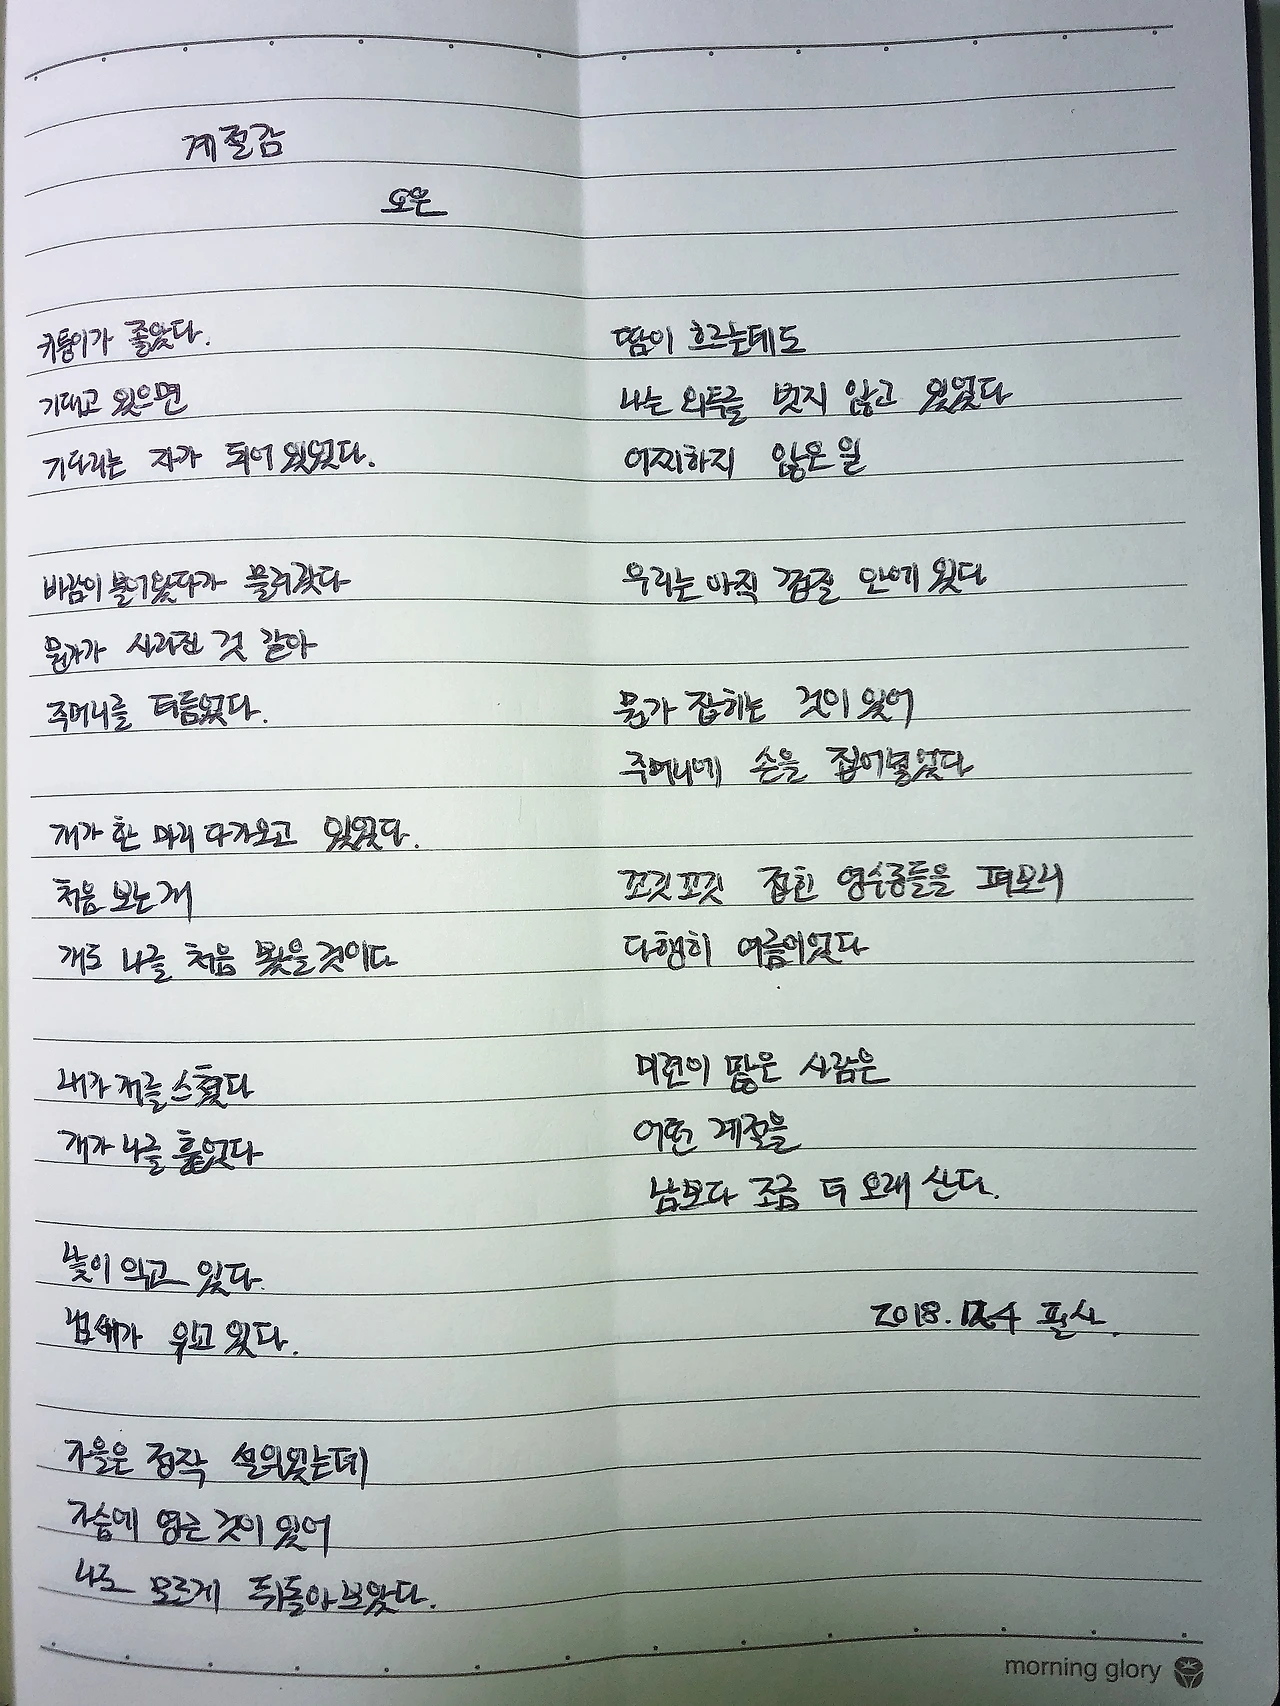 계절감
오은
귀퉁이가 좋았다.
기대고 있으면
기다리는 자가 되어 있었다.
바람이 불어왔다가 물러갔다
뭔가가 사라진 것 같아
주머니를 더듬었다.
개가 한 마리 다가오고 있었다.
처음 보는 개
개도 나를 처음 봤을 것이다
내가 개를 스쳤다
개가 나를 훑었다
낯이 익고 있다.
냄새가 익고 있다.
가을은 정작 설익었는데
가슴에 영근 것이 있어
나도 모르게 뒤돌아보았다.
땀이 흐르는데도
나는 외투를 벗지 않고 있었다
어찌하지 않은 일
우리는 아직 껍질 안에 있다
뭔가 잡히는 것이 있어
주머니에 손을 집어넣었다
꼬깃꼬깃 접힌 영수증들을 펴보니
다행히 여름이었다
미련이 많은 사람은
어떤 계절을
남보다 조금 더 오래 산다.
2018. 필사.
morning glory